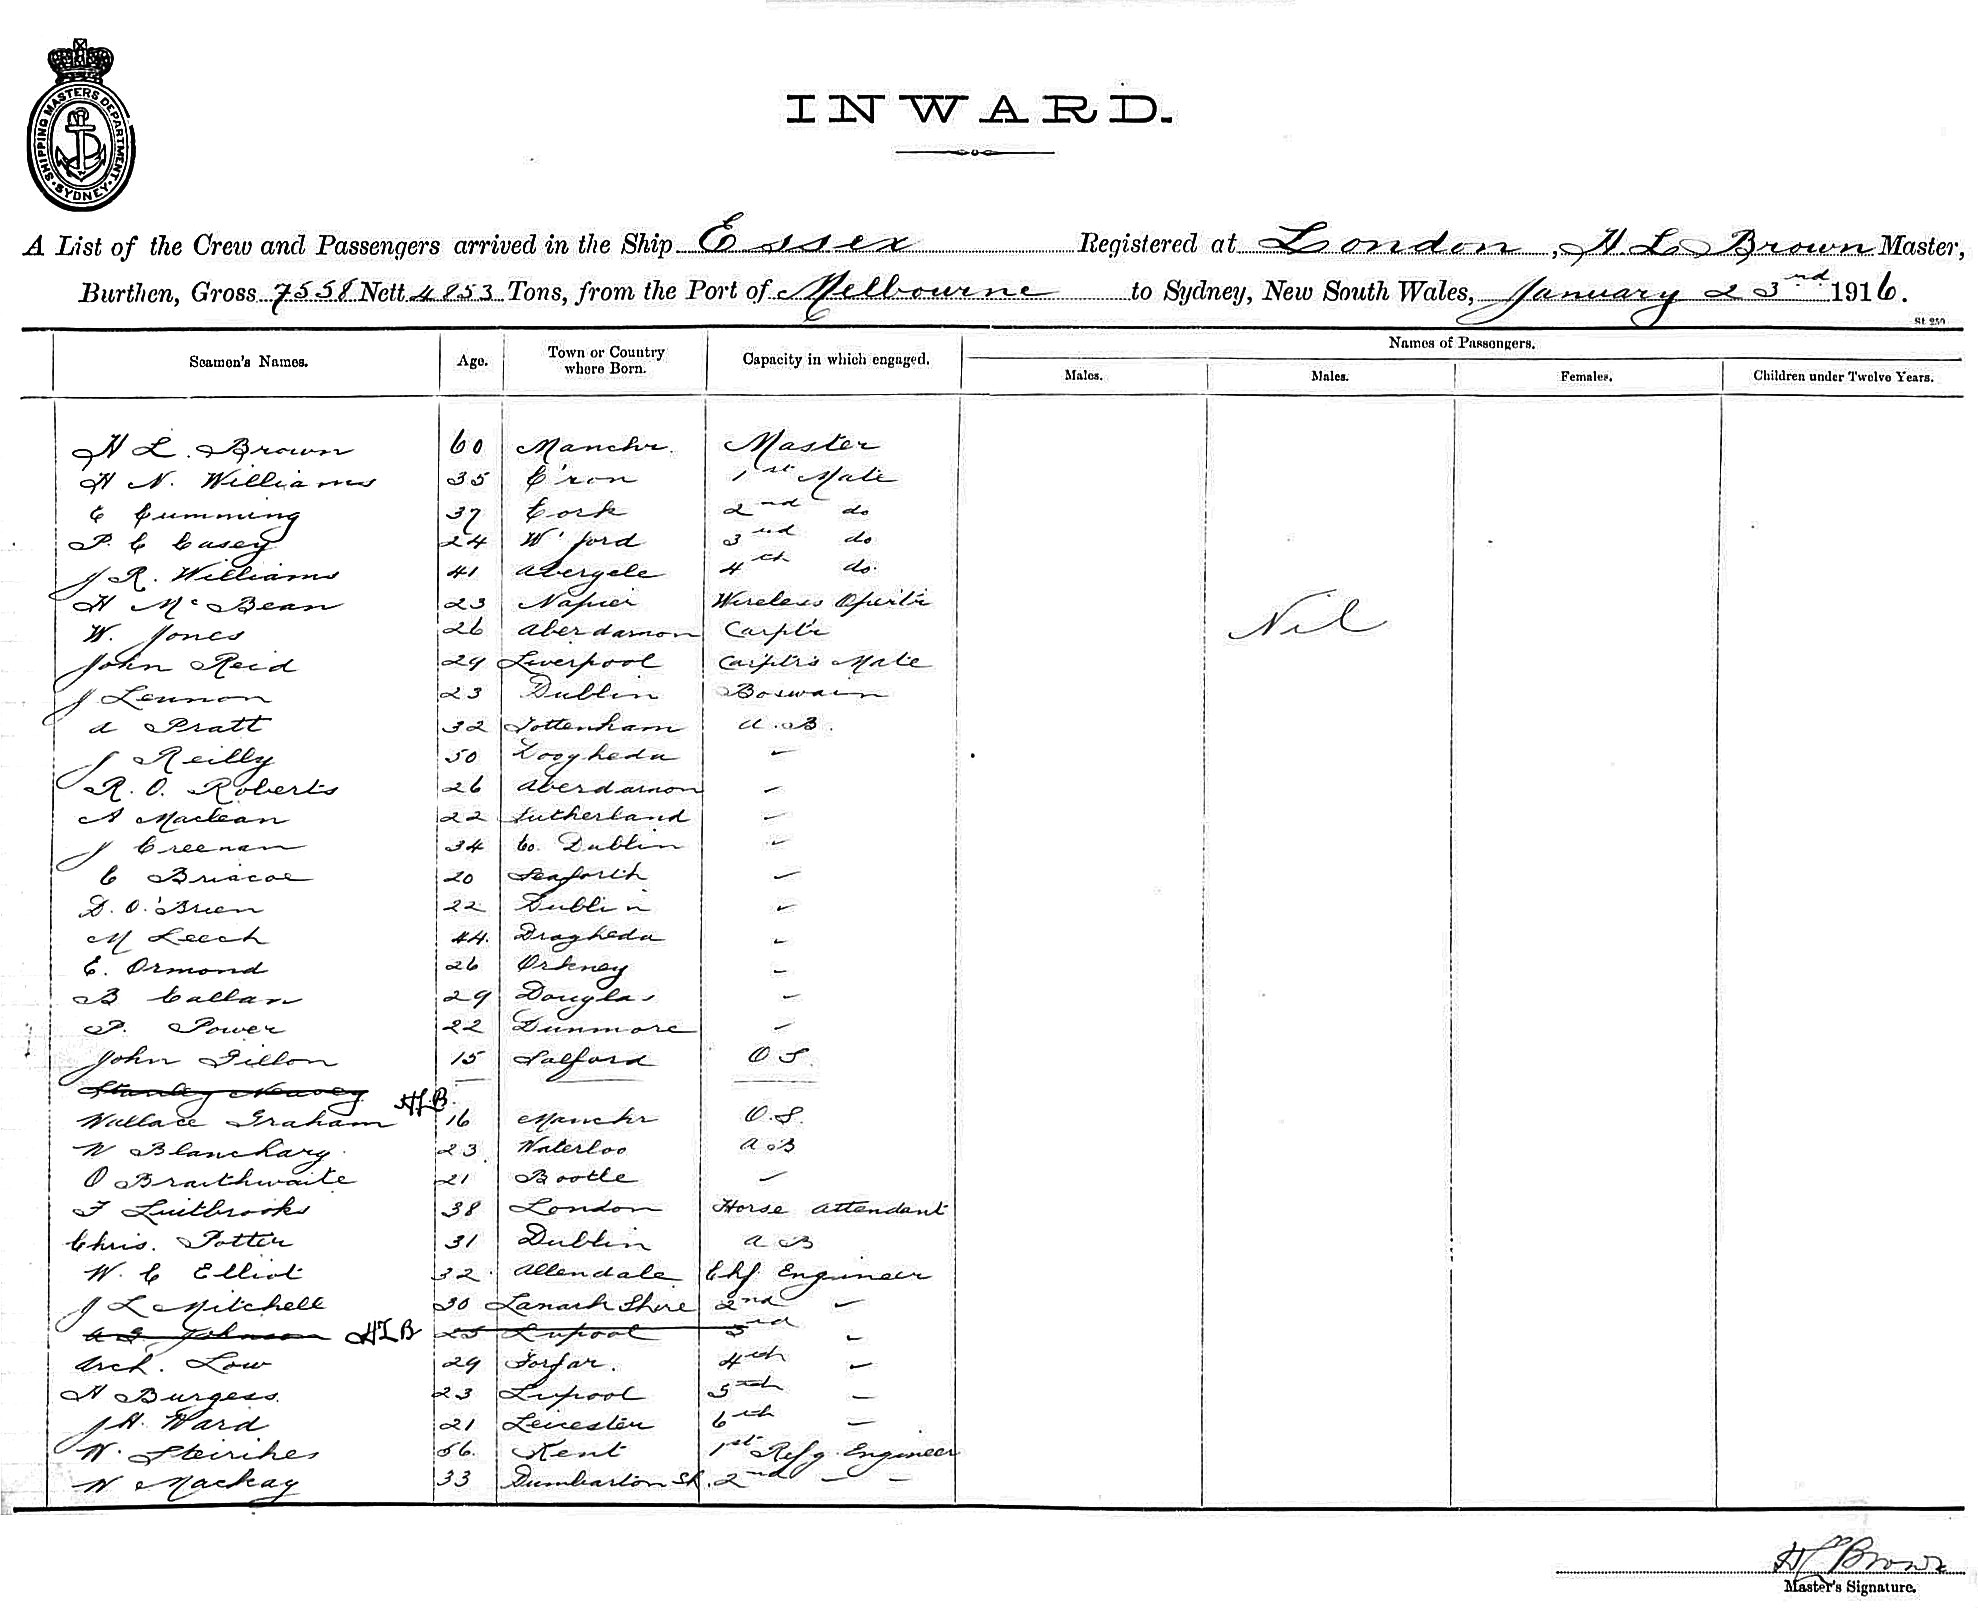 SHIPPING MASTERS DEPARTMENT · SYDNEY ·
INWARD.
A List of the Crew and Passengers arrived in the Ship Essex Registered at London, H. L. Brown Master,
Burthen, Gross 7558 Nett 4853 Tons, from the Port of Melbourne to Sydney, New South Wales, January 23rd 1916.
St 250
Seamen's Names. Age. Town or Country where Born. Capacity in which engaged. Names of Passengers.
Males. Males. Females. Children under Twelve Years.
H L. Brown 60 Manchr. Master
H N. Williams 35 C'von 1st Mate
C Cumming 37 Cork 2nd do
P. C Casey 24 W'ford 3rd do
J R. Williams 41 Abergele 4th do.
H McBean 23 Napier Wireless Opert'r
W. Jones 26 Aberdarnon Carpt'r
Nil
John Reid 29 Liverpool Carptr's Mate
J Lennon 23 Dublin Boswain
A Pratt 32 Tottenham A.B.
J Reilly 50 Drogheda "
R. O. Roberts 26 Aberdarnon "
A Maclean 22 Sutherland "
J Creenan 34 Co. Dublin "
C Briscoe 20 Seaforth "
D. O'Brien 22 Dublin "
M Leech 44. Dragheda "
E. Ormond 26 Orkney "
B Callan 29 Douglas "
P. Power 22 Dunmore "
John Fillon 15 Salford O S.
Stanley Neavey HLB.
Wallace Graham 16 Manchr O.S.
W Blanchary 23 Waterloo A B
O Braithwaite 21 Bootle "
F Luitbrooks 38 London Horse Attendant
Chris. Potter 31 Dublin A B
W. C Elliot 32 Allendale Chf. Engineer
J L Mitchell 30 Lanark Shire 2nd "
A G Johnson HLB 25 L'pool 3rd "
Arch. Low 29 Forfar. 4th "
H Burgess. 23 L'pool 5th "
J H. Ward 21 Leicester 6th "
W. 56. Kent 1st Refg. Engineer
W Mackay 33 Dumbarton Sh. 2nd " "
H L Brown
Master's Signature.